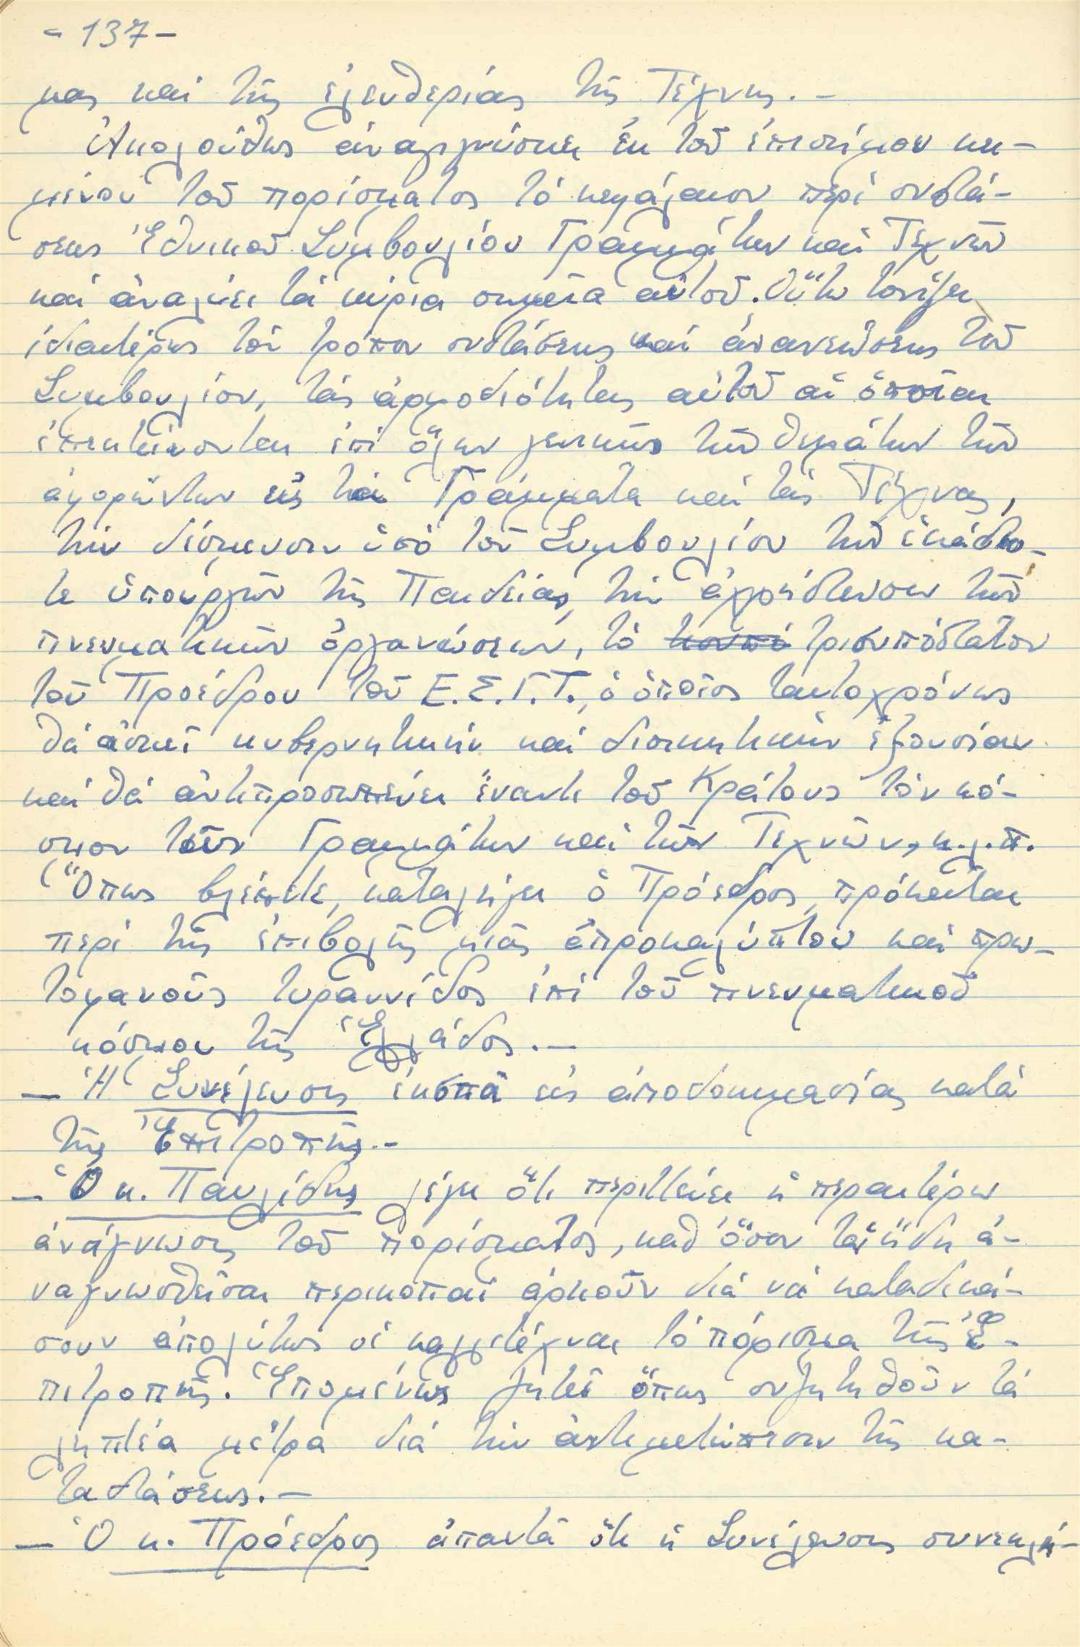 - 137 -
μας καὶ τῆς ἐλευθερίας τῆς Τέχνης. -
Ἀκολούθως ἀναγιγνώσκει ἐκ τοῦ ἐπισήμου κει-
μένου τοῦ πορίσματος τὸ κεφάλαιον περὶ συστά-
σεως Ἐθνικοῦ Συμβουλίου Γραμμάτων καὶ Τεχνῶν
καὶ ἀναλύει τὰ κύρια σημεῖα αὐτοῦ. Οὕτω τονίζει
ἰδιαιτέρως τὸν τρόπον συστάσεως καὶ ἀνανεώσεως τοῦ
Συμβουλίου, τὰς ἁρμοδιότητας αὐτοῦ αἱ ὁποῖαι
ἐπεκτείνονται ἐπὶ ὅλων γενικῶς τῶν θεμάτων τῶν
ἀφορώντων εἰς τὰ Γράμματα καὶ τὰς Τέχνας,
τὴν δέσμευσιν ὑπὸ τοῦ Συμβουλίου τῶν ἑκάστο-
τε ὑπουργῶν τῆς Παιδείας, τὴν ἀχρήστευσιν τῶν
πνευματικῶν ὀργανώσεων, τὸ τρισυπόστατον
τοῦ Προέδρου τοῦ Ε.Σ.Γ.Τ., ὁ ὁποῖος ταυτοχρόνως
θὰ ἀσκεῖ κυβερνητικὴν καὶ διοικητικὴν ἐξουσίαν
καὶ θὰ ἀντιπροσωπεύει ἔναντι τοῦ Κράτους τὸν κό-
σμον τῶν Γραμμάτων καὶ τῶν Τεχνῶν, κ.λ.π.
Ὅπως βλέπετε, καταλήγει ὁ Πρόεδρος, πρόκειται
περὶ τῆς ἐπιβολῆς μιᾶς ἀπροκαλύπτου καὶ πρω-
τοφανοῦς τυραννίδος ἐπὶ τοῦ πνευματικοῦ
κόσμου τῆς Ἑλλάδος. -
- Ἡ Συνέλευσις ἐκσπᾶ εἰς ἀποδοκιμασίας κατὰ
τῆς Ἐπιτροπῆς. -
- Ὁ κ. Παυλίδης λέγει ὅτι περιττεύει ἡ περαιτέρω
ἀνάγνωσις τοῦ πορίσματος, καθ' ὅσον αἱ ἤδη ἀ-
ναγνωσθεῖσαι περικοπαὶ ἀρκοῦν διὰ νὰ καταδικά-
σουν ἀπολύτως οἱ καλλιτέχναι τὸ πόρισμα τῆς Ἐ-
πιτροπῆς. Ἑπομένως ζητεῖ ὅπως συζητηθοῦν τὰ
ληπτέα μέτρα διὰ τὴν ἀντιμετώπισιν τῆς κα-
ταστάσεως. -
- Ὁ κ. Πρόεδρος ἀπαντᾶ ὅτι ἡ Συνέλευσις συνεκλή-